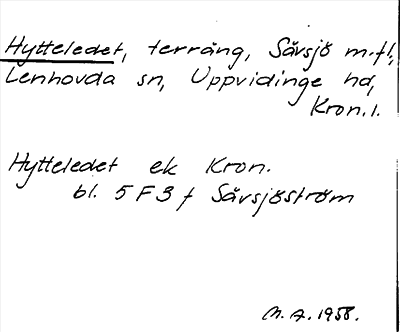 Hytteledet, terräng, Sävsjö m.fl.,
Lenhovda sn, Uppvidinge hd,
Kron. l.
Hytteledet ek Kron.
bl. 5 F 3 f Sävsjöström
M.A. 1958.